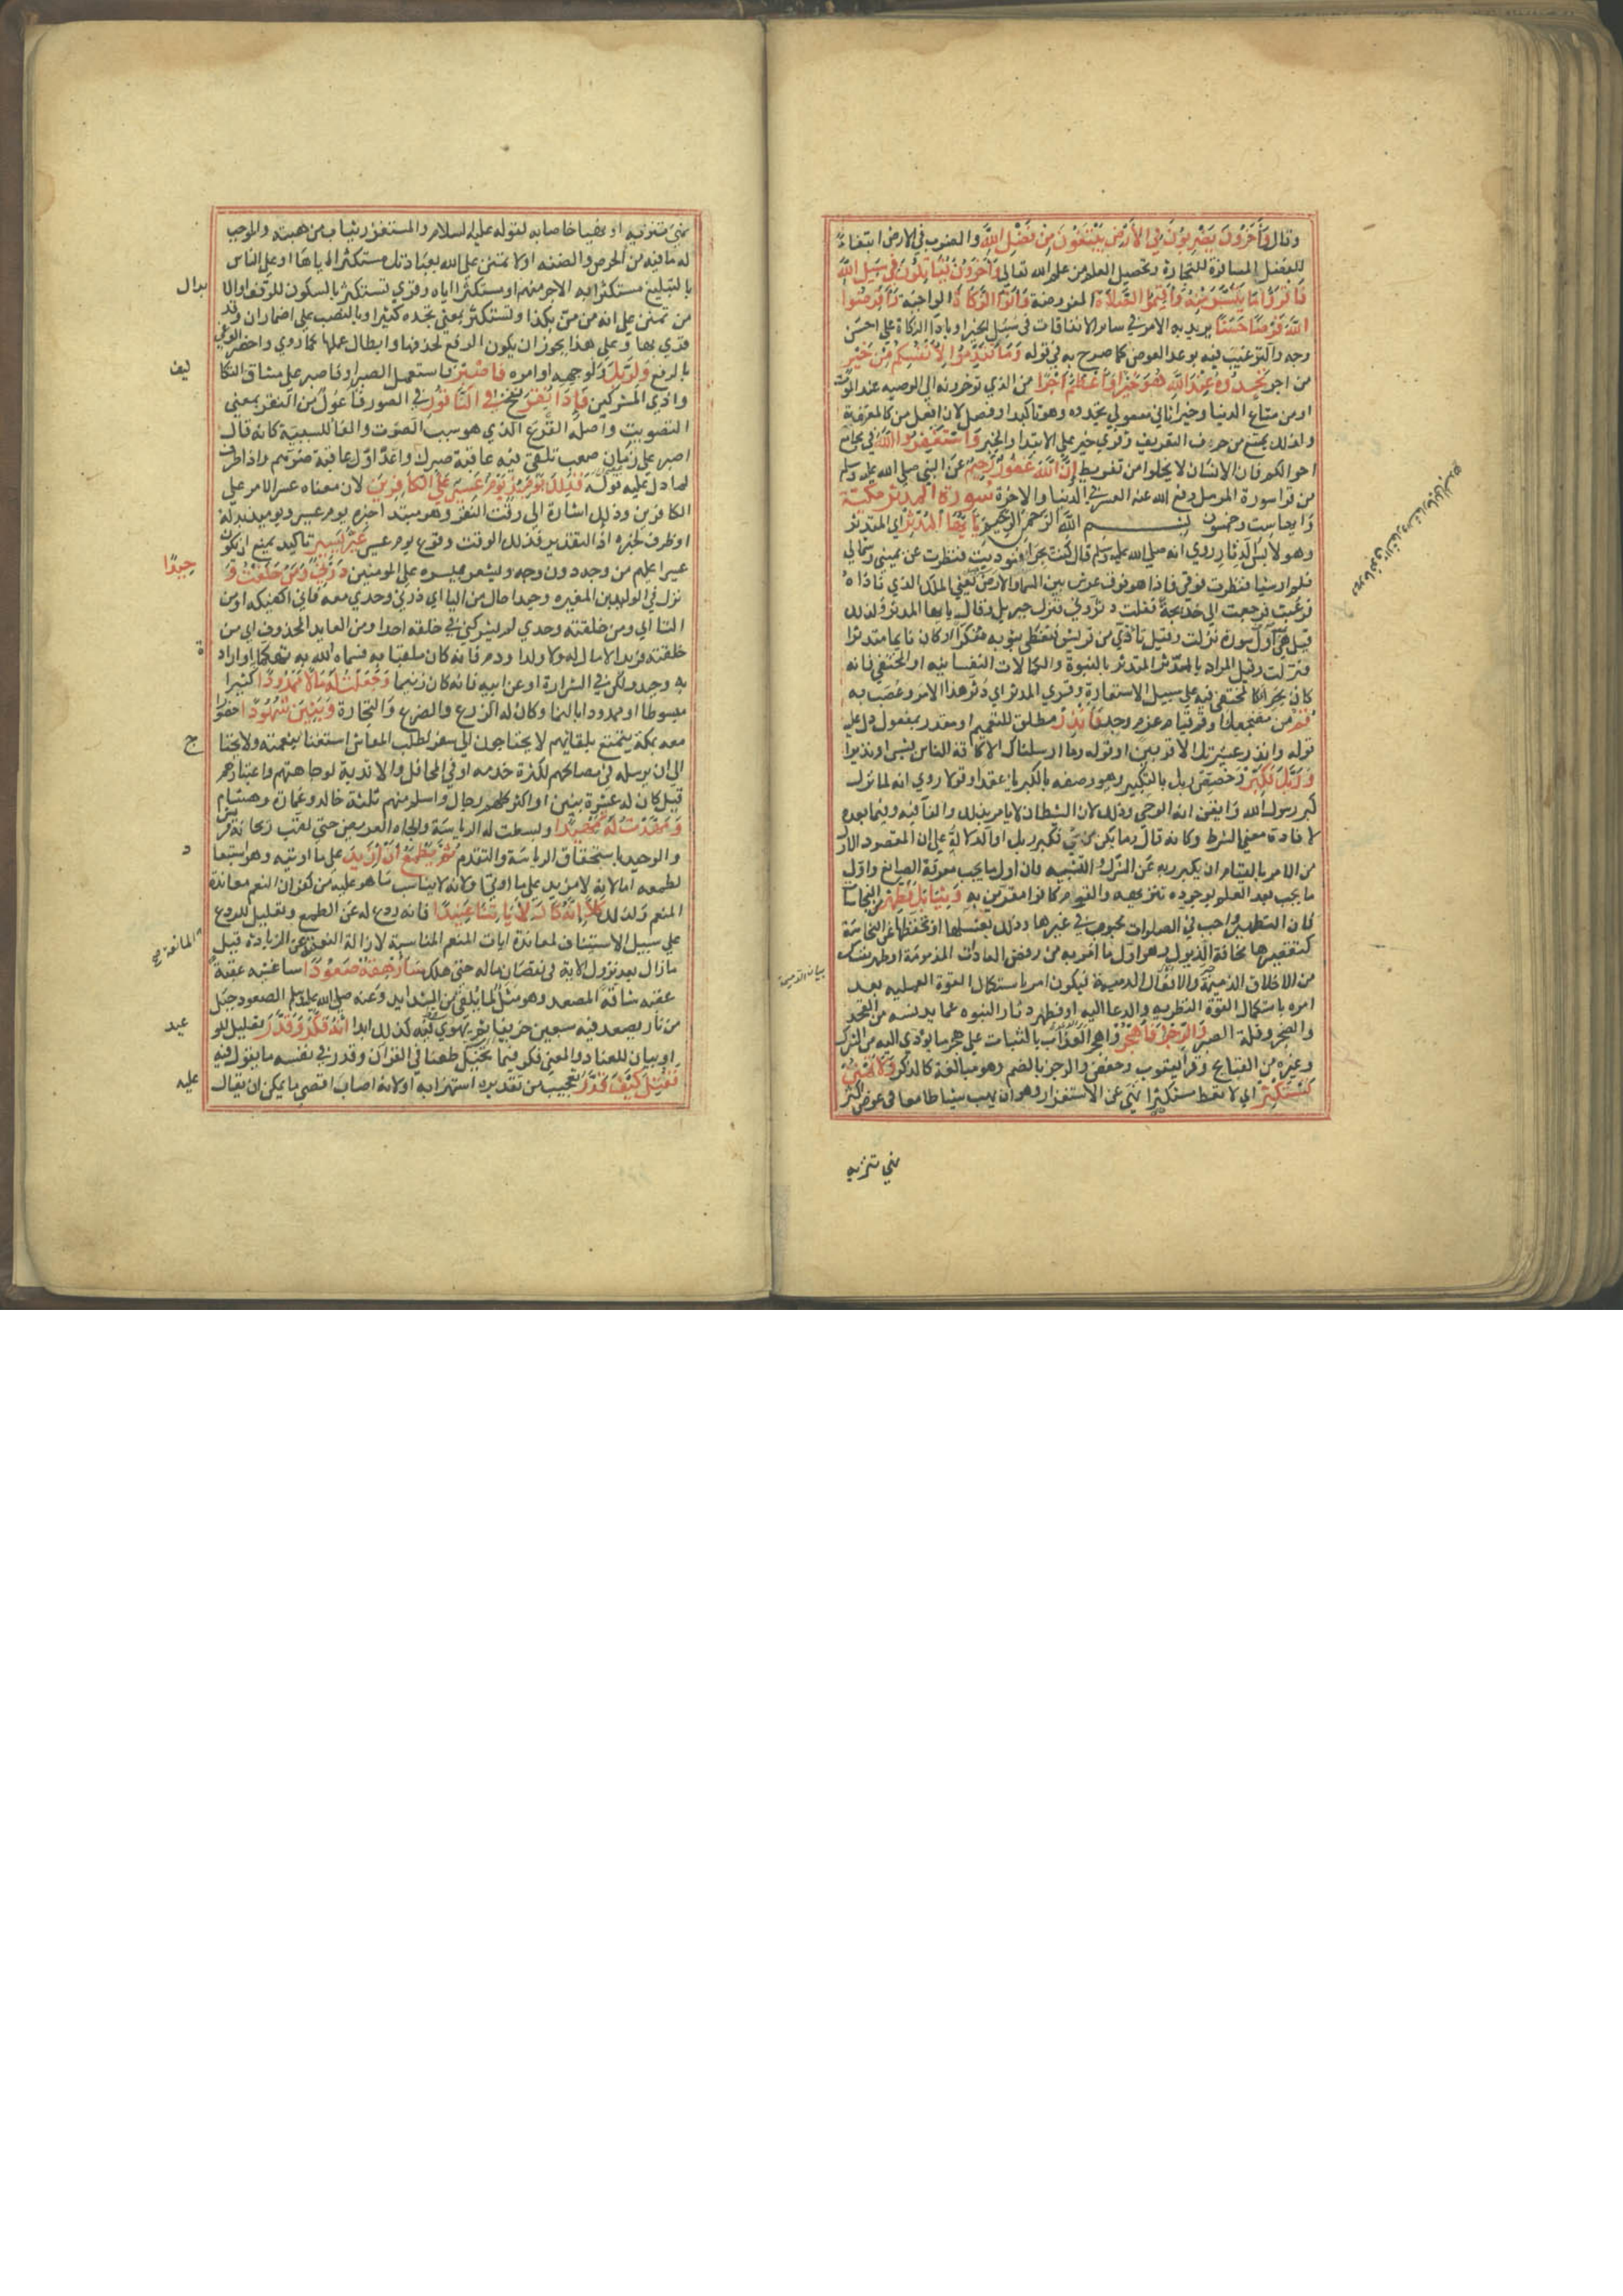 وقال وَآخَرُونَ يَضْرِبُونَ فِي الأَرْضِ يَبْتَغُونَ مِنْ فَضْلِ اللَّهِ والضرب في الارض ابتغاء
للفضل المسافرة للتجارة وتحصيل العلم من علم الله تعالى وَآخَرُونَ يُقَاتِلُونَ فِي سَبِيلِ اللَّهِ
فَاقْرَؤُا مَا تَيَسَّرَ مِنْهُ وَأَقِيمُوا الصَّلَاةَ المفروضة وَآتُوا الزَّكَاةَ الواجبة وَأَقْرِضُوا
اللَّهَ قَرْضًا حَسَنًا يريد به الامر في سائر الانفاقات في سبل الخير او باداء الزكاة على احسن
وجه والترغيب فيه بوعد العوض كما صرح به في قوله وَمَا تُقَدِّمُوا لِأَنْفُسِكُمْ مِنْ خَيْرٍ
من اجر تَجِدُوهُ عِنْدَ اللَّهِ هُوَ خَيْرًا وَأَعْظَمَ أَجْرًا من الذي توخرونه الى الوصيه عند الموت
او من متاع الدنيا وخيرا ثاني مفعولي تجدوه وهو تاكيد او فصل لان افعل من كالمعرفة
ولذلك يمتنع من حرف التعريف وقري خير على الابتدا والخبر وَاسْتَغْفِرُوا اللَّهَ في مجامع
احوالكم فان الانسان لا يخلوا من تفريط إِنَّ اللَّهَ غَفُورٌ رَحِيمٌ عن النبي صلى الله عليه وسلم
من قرا سورة المزمل دفع الله عنه العسر في الدنيا والاخرة سورة المدثر مكية
وايها ست وخمسون بسم الله الرحمن الرحيم يَا أَيُّهَا الْمُدَّثِّرُ اي المتدثر
وهو لابس الدثار روي انه صلى الله عليه وسلم قال كنت بحرا فنوديت فنظرت عن يميني وشمالي
فلم ار شيا فنظرت فوقي فاذا هو فوق عرش بين السما والارض يعني الملك الذي ناداه
فرعبت فرجعت الى خديجة فقلت دثروني فنزل جبريل وقال يايها المدثر ولذلك
قيل هي اول سورة نزلت وقيل تاذى من قريش فتغطى بثوبه مفكرا او كان نايما متدثرا
فنزلت وقيل المراد بالمدثر المتدثر بالنبوة والكمالات النفسانيه او المختفي فانه
كان بحرا كالمختفي فيه على سبيل الاستعارة وقري المدثر اي دثر هذا الامر وعصب به
قُمْ من مضجعك او قم قيام عزم وجد فَأَنْذِرْ مطلق للتعميم او مقدر بمفعول دل عليه
قوله وانذر عشيرتك الاقربين او قوله وما ارسلناك الا كافة للناس بشيرا ونذيرا
وَرَبَّكَ فَكَبِّرْ وخصص ربك بالتكبير وهو وصفه بالكبريا عقدا وقولا روي انه لما نزل
كبر رسول الله وايقن انه الوحي وذلك لان الشيطان لا يامر بذلك والفا فيه وفيما بعده
لافادة معنى الشرط وكانه قال وما يكن من شي فكبر ربك او الدلالة على ان المقصود الاول
من الامر بالقيام ان يكبر ربه عن الشرك والتشبيه فان اول ما يجب معرفة الصانع واول
ما يجب بعد العلم بوجوده تنزيهه والقوم كانوا مقرين به وَثِيَابَكَ فَطَهِّرْ من النجاسات
فان التطهير واجب في الصلوات محبوب في غيرها وذلك بغسلها او بحفظها عن النجاسة
كتقصيرها مخافة الذيول وهو اول ما امر به من رفض العادات المذمومة او طهر نفسك
من الاخلاق الذميمة والافعال الدميمة فيكون امر باستكمال القوة العمليه بعد
امره باستكمال القوة النظريه والدعا اليه او فطهر دثار النبوه عما يدنسه من الحقد
والضجر وقلة الصبر وَالرُّجْزَ فَاهْجُرْ واهجر العذاب بالثبات على هجر ما يؤدي اليه من الشرك
وغيره من القبايح وقرا يعقوب وحفص والرجز بالضم وهو مبالغة كالذكر وَلَا تَمْنُنْ
تَسْتَكْثِرُ اي لا تعط مستكثرا نهي عن الاستغزار وهو ان يهب شيا طامعا في عوض اكثر
نهي تنزيه
نهي تنزيه او نهيا خاصا به لقوله عليه السلام والمستغزر يثاب من هبته والموجب
له ما فيه من الحرص والضنه او لا تمنن على الله بعبادتك مستكثرا اياها او على الناس
بالتبليغ مستكثرا به الاجر منهم او مستكثرا اياه وقري تستكثر بالسكون للوقف او الابدال
من تمنن على انه من من بكذا وتستكثر بمعنى تجده كثيرا وبالنصب على اضمار ان وقد
قري بها وعلى هذا يجوز ان يكون الرفع لحذفها وابطال عملها كما روي واحضر الوغى
بالرفع وَلِرَبِّكَ ولوجهه او امره فَاصْبِرْ فاستعمل الصبر او فاصبر على مشاق التكاليف
واذى المشركين فَإِذَا نُقِرَ نفخ فِي النَّاقُورِ في الصور فاعول من النقر بمعنى
التصويت واصله القرع الذي هو سبب الصوت والفا للسببية كانه قال
اصبر على زمان صعب تلقى فيه عاقبة صبرك واعداوك عاقبة ضرهم واذا ظرف
لما دل عليه قوله فَذَلِكَ يَوْمَئِذٍ يَوْمٌ عَسِيرٌ عَلَى الْكَافِرِينَ لان معناه عسر الامر على
الكافرين وذلك اشارة الى وقت النقر وهو مبتدا خبره يوم عسير ويومئذ بدله
او ظرف لخبره اذ التقدير فذلك الوقت وقوع يوم عسير غَيْرُ يَسِيرٍ تاكيد يمنع ان يكون
عسيرا عليهم من وجه دون وجه ويشعر بيسره على المومنين ذَرْنِي وَمَنْ خَلَقْتُ وَحِيدًا
نزل في الوليد بن المغيره وحيدا حال من اليا اي ذرني وحدي معه فاني اكفيكه او من
التا اي ومن خلقته وحدي لم يشركني في خلقه احد او من العايد المحذوف اي من
خلقته فريدا لا مال له ولا ولد او ذم فانه كان ملقبا به فسماه الله به تهكما او ارادة
به وحيد ولكن في الشرارة او عن ابيه فانه كان زنيما وَجَعَلْتُ لَهُ مَالًا مَمْدُودًا كثيرا
مبسوطا او ممدودا بالنما وكان له الزرع والضرع والتجارة وَبَنِينَ شُهُودًا حضورا
معه بمكة يتمتع بلقائهم لا يحتاجون الى سفر لطلب المعاش استغنا بنعمته ولا يحتاج
الى ان يرسله في مصالحهم لكثرة خدمه او في المحافل والاندية لوجاهتهم واعتبارهم
قيل كان له عشرة بنين او اكثر كلهم رجال واسلم منهم ثلثة خالد وعمارة وهشام
وَمَهَّدْتُ لَهُ تَمْهِيدًا وبسطت له الرياسة والجاه العريض حتى لقب ريحانة قريش
والوحيد باستحقاق الرياسة والتقدم ثُمَّ يَطْمَعُ أَنْ أَزِيدَ على ما اوتيه وهو استبعاد
لطمعه اما لانه لا مزيد على ما اوتي او لانه لا يناسب ما هو عليه من كفران النعم معاندة
المنعم ولذلك كَلَّا إِنَّهُ كَانَ لِآيَاتِنَا عَنِيدًا فانه ردع له عن الطمع وتعليل للردع
على سبيل الاستيناف لمعاندة ايات المنعم المناسبة لازالة النعمة المانعة عن الزيادة قيل
مازال بعد نزول الاية في نقصان ماله حتى هلك سَأُرْهِقُهُ صَعُودًا ساغشيه عقبة
عقبة شاقة المصعد وهو مثل لما يلقى من الشدايد وعنه صلى الله عليه وسلم الصعود جبل
من نار يصعد فيه سبعين خريفا ثم يهوي فيه كذلك ابدا إِنَّهُ فَكَّرَ وَقَدَّرَ تعليل للوعيد
او بيان للعناد والمعنى فكر فيما يخيل طعنا في القران وقدر في نفسه ما يقول فيه
فَقُتِلَ كَيْفَ قَدَّرَ تعجيب من تقديره استهزا به او لانه اصاب اقصى ما يمكن ان يقال عليه